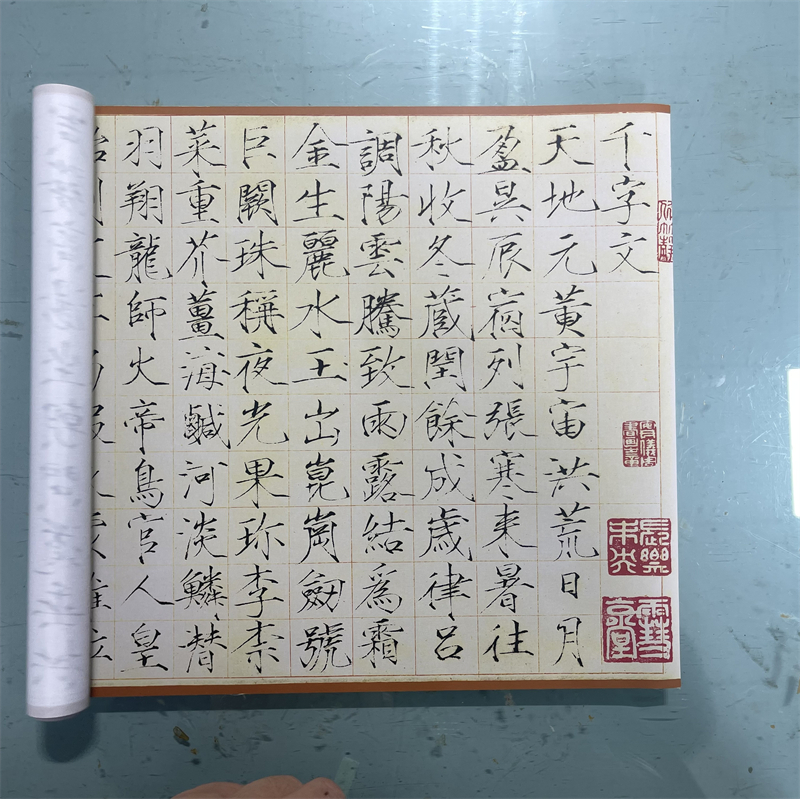 千字文
天地元黃宇宙洪荒日月
盈昃辰宿列張寒来暑往
秋收冬蔵閏餘成歲律呂
調陽雲騰致雨露結爲霜
金生麗水玉出崑崗劔號
巨闕珠稱夜光果珎李柰
菜重芥薑海鹹河淡鱗潛
羽翔龍師火帝鳥官人皇